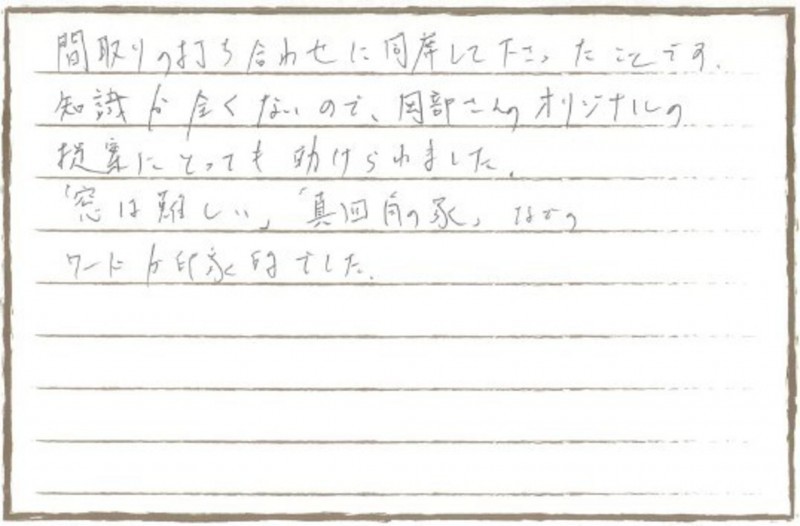 間取りの打ち合わせに同席して下さったことです。
知識が全くないので、岡部さんのオリジナルの
提案にとっても助けられました。
「窓は難しい」「真四角の家」などの
ワードが印象的でした。